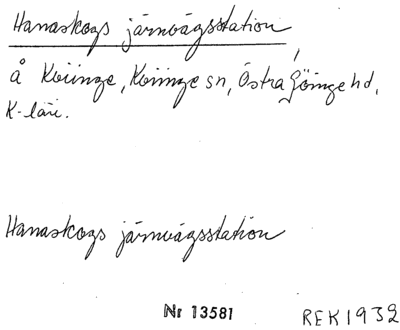 Hanaskogs järnvägsstation,
å Kviinge, Kviinge sn, Östra Göinge hd,
K-län.
Hanaskogs järnvägsstation
Nr 13581 REK1932